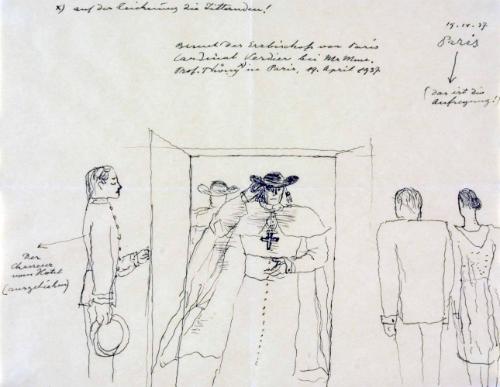 x) auf der Zeichnung die Zitternden!
19. IV. 37
Paris
Besuch des Erzbischofs von Paris
Cardinal Verdier bei Mr Mme.
Prof. in Paris, 19. April 1937.
(das ist die
Aufregung!)
Der
Chasseur
vom Hotel
(ausgeliehen)